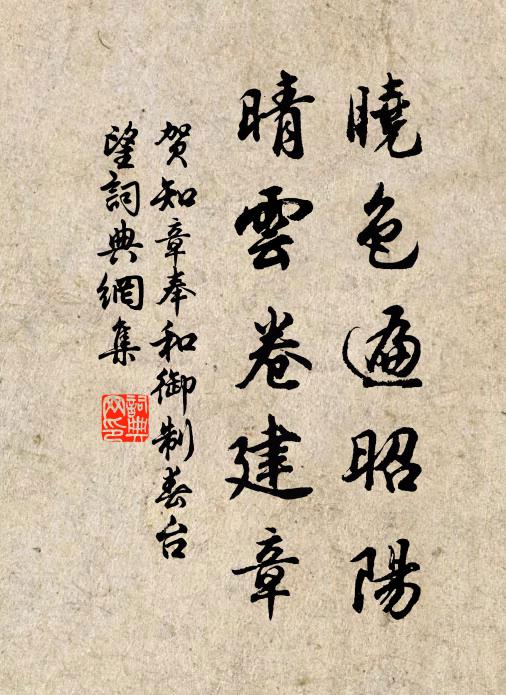 曉色遍昭陽
晴雲卷建章
贺知章奉和御制春台
望詞典網集
詞典
网印